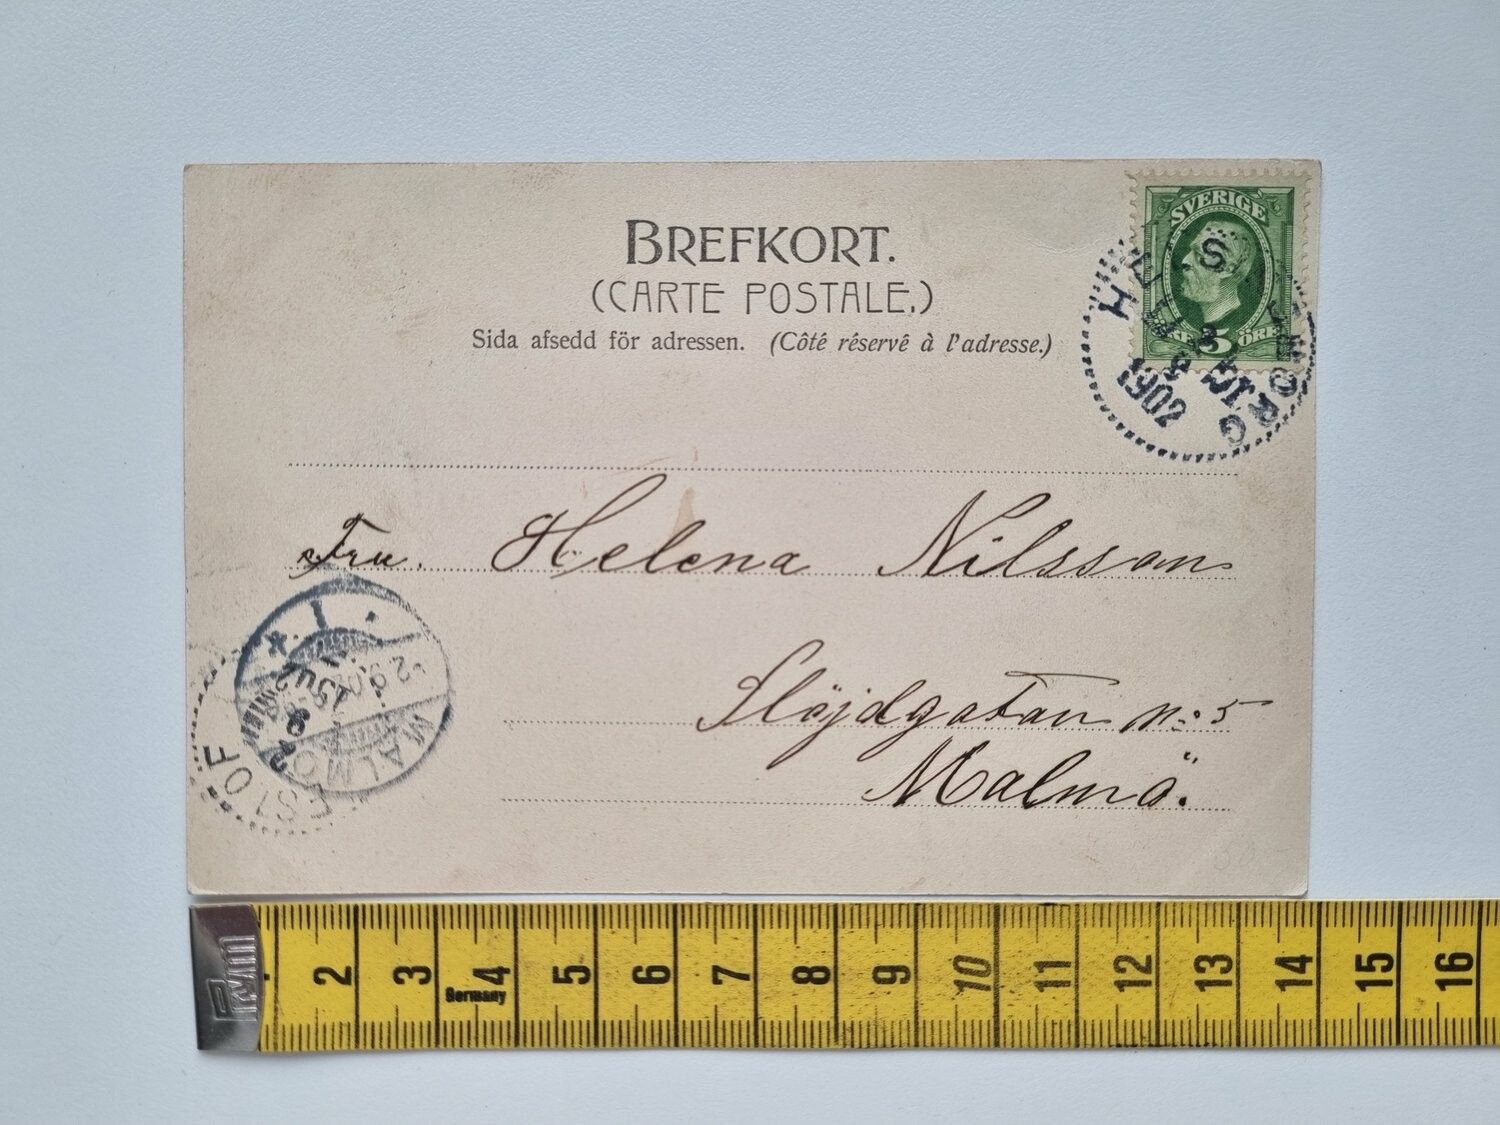 BREFKORT.
(CARTE POSTALE.)
Sida afsedd för adressen. (Côté réservé à l'adresse.)
SVERIGE
5 ÖRE
HELSINGBORG
1902
Fru. Helena Nilsson
Slöjdgatan n:o 5
Malmö.
MALMÖ
ESLÖF
2 3 4 5 6 7 8 9 10 11 12 13 14 15 16
Germany